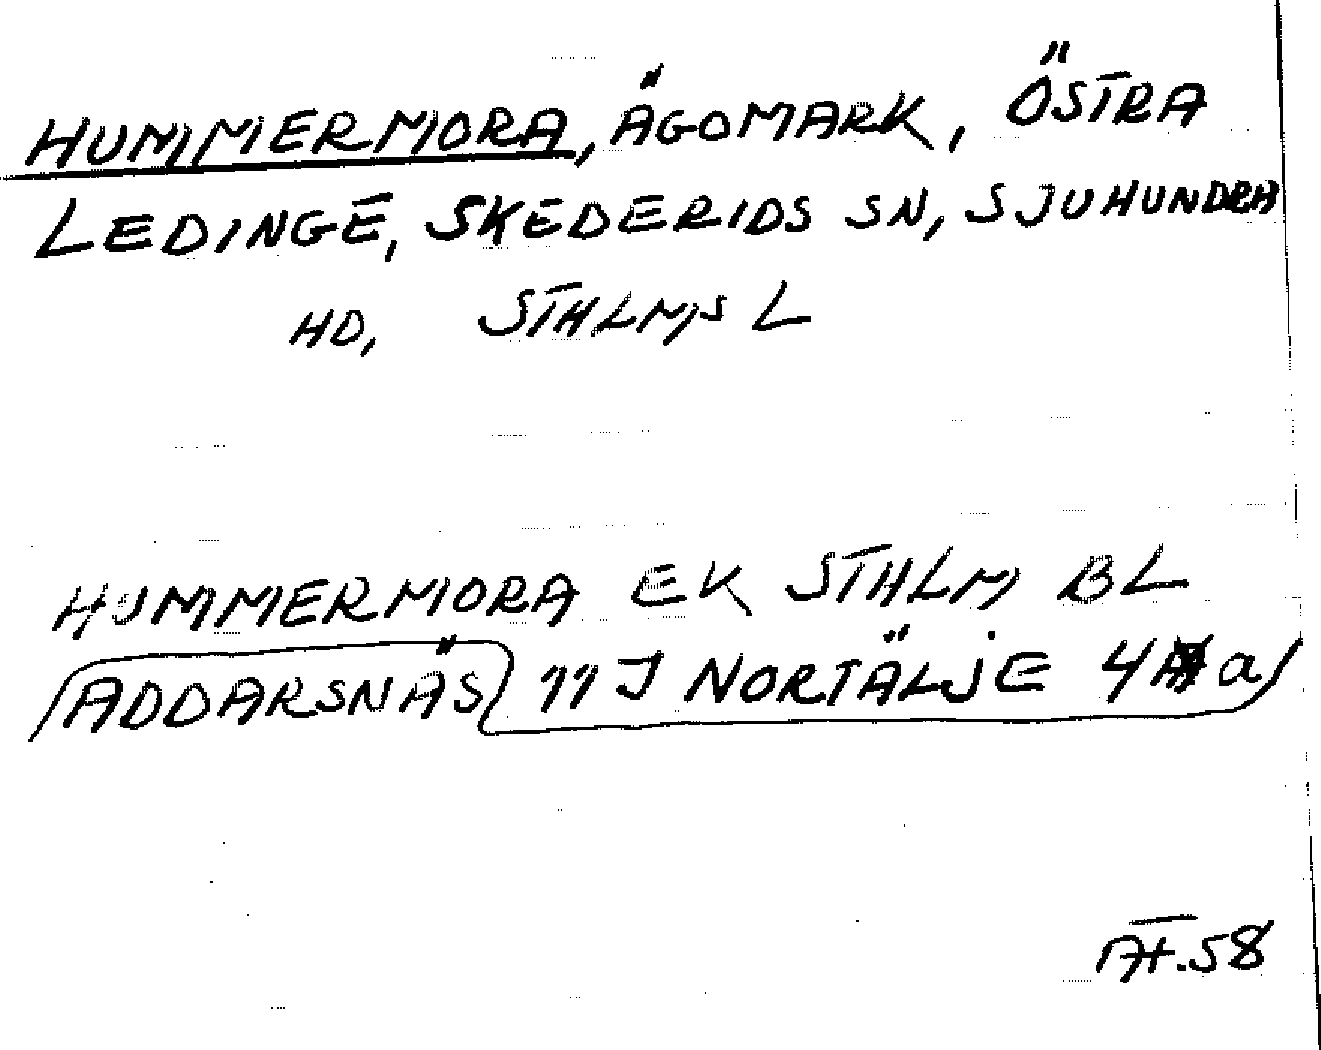 HUMMERMORA, ÄGOMARK, ÖSTRA
LEDINGE, SKEDERIDS SN, SJUHUNDRA
HD, STHLMS L
HUMMERMORA EK STHLM BL
ADDARSNÄS 11J NORTÄLJE 4 a
.58